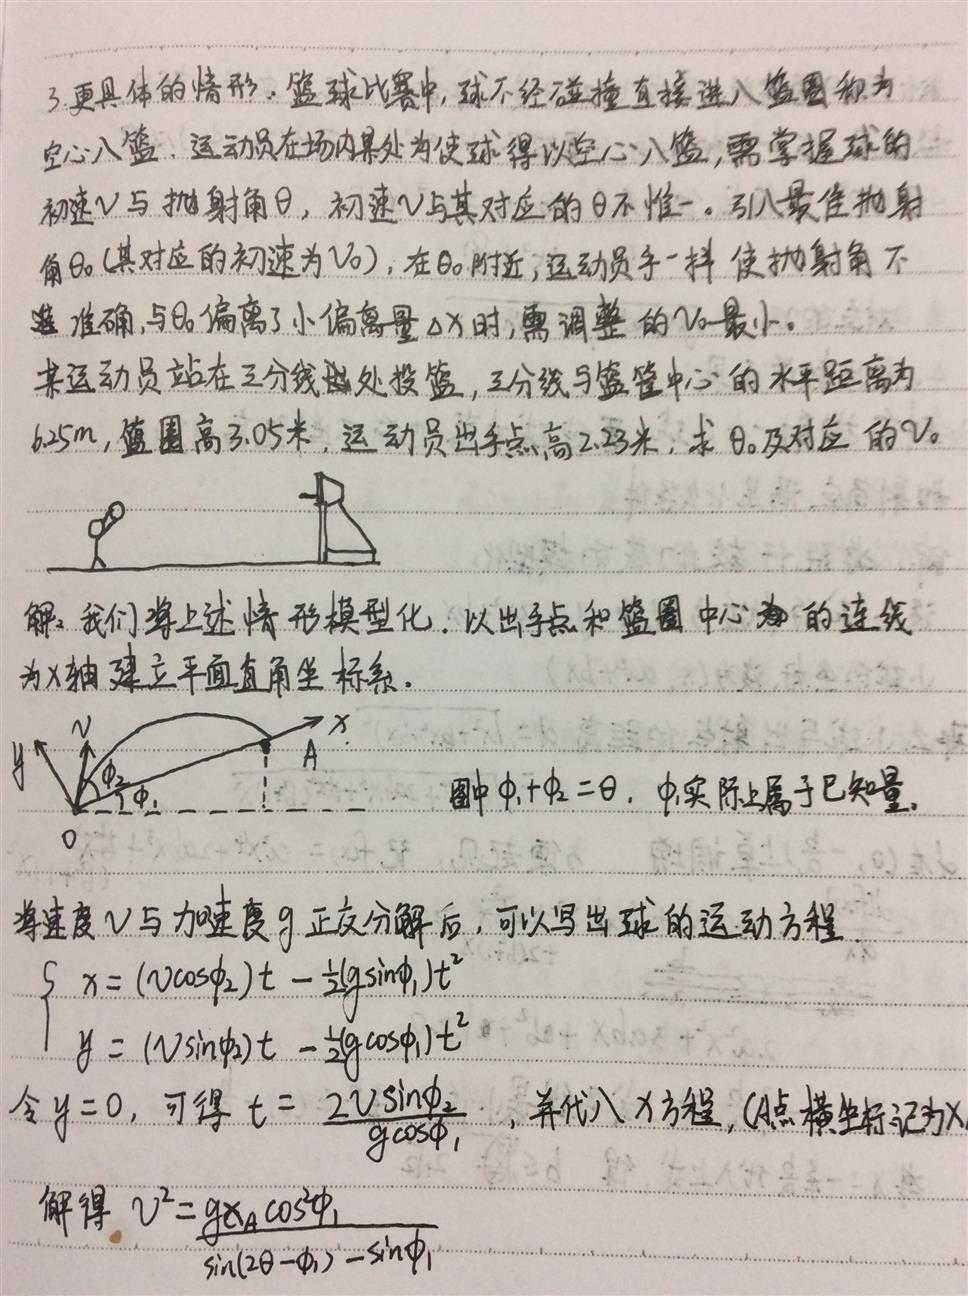 3.更具体的情形。篮球比赛中,球不经碰撞直接进入篮圈称为
空心入篮.运动员在场内某处为使球得以空心入篮,需掌握球的
初速v与抛射角θ,初速v与其对应的θ不惟一。引入最佳抛射
角θ₀(其对应的初速为V₀),在θ₀附近,运动员手一抖使抛射角不
准确,与θ₀偏离了小偏离量△x时,需调整的V₀最小。
某运动员站在三分线处投篮,三分线与篮筐中心的水平距离为
6.25m,篮圈高3.05米,运动员出手点高2.23米,求θ₀及对应的V₀
解:我们将上述情形模型化.以出手点和篮圈中心的连线
为x轴建立平面直角坐标系.
y v φ₂ φ₁ x A O
图中φ₁+φ₂=θ,φ₁实际上属于已知量.
将速度v与加速度g正交分解后,可以写出球的运动方程.
{ x=(vcosφ₂)t-½(gsinφ₁)t²
y=(vsinφ₂)t-½(gcosφ₁)t²
令y=0,可得t=2vsinφ₂/gcosφ₁,并代入x方程,(A点横坐标记为x
解得 v²=gx_A cos²φ₁/sin(2θ-φ₁)-sinφ₁